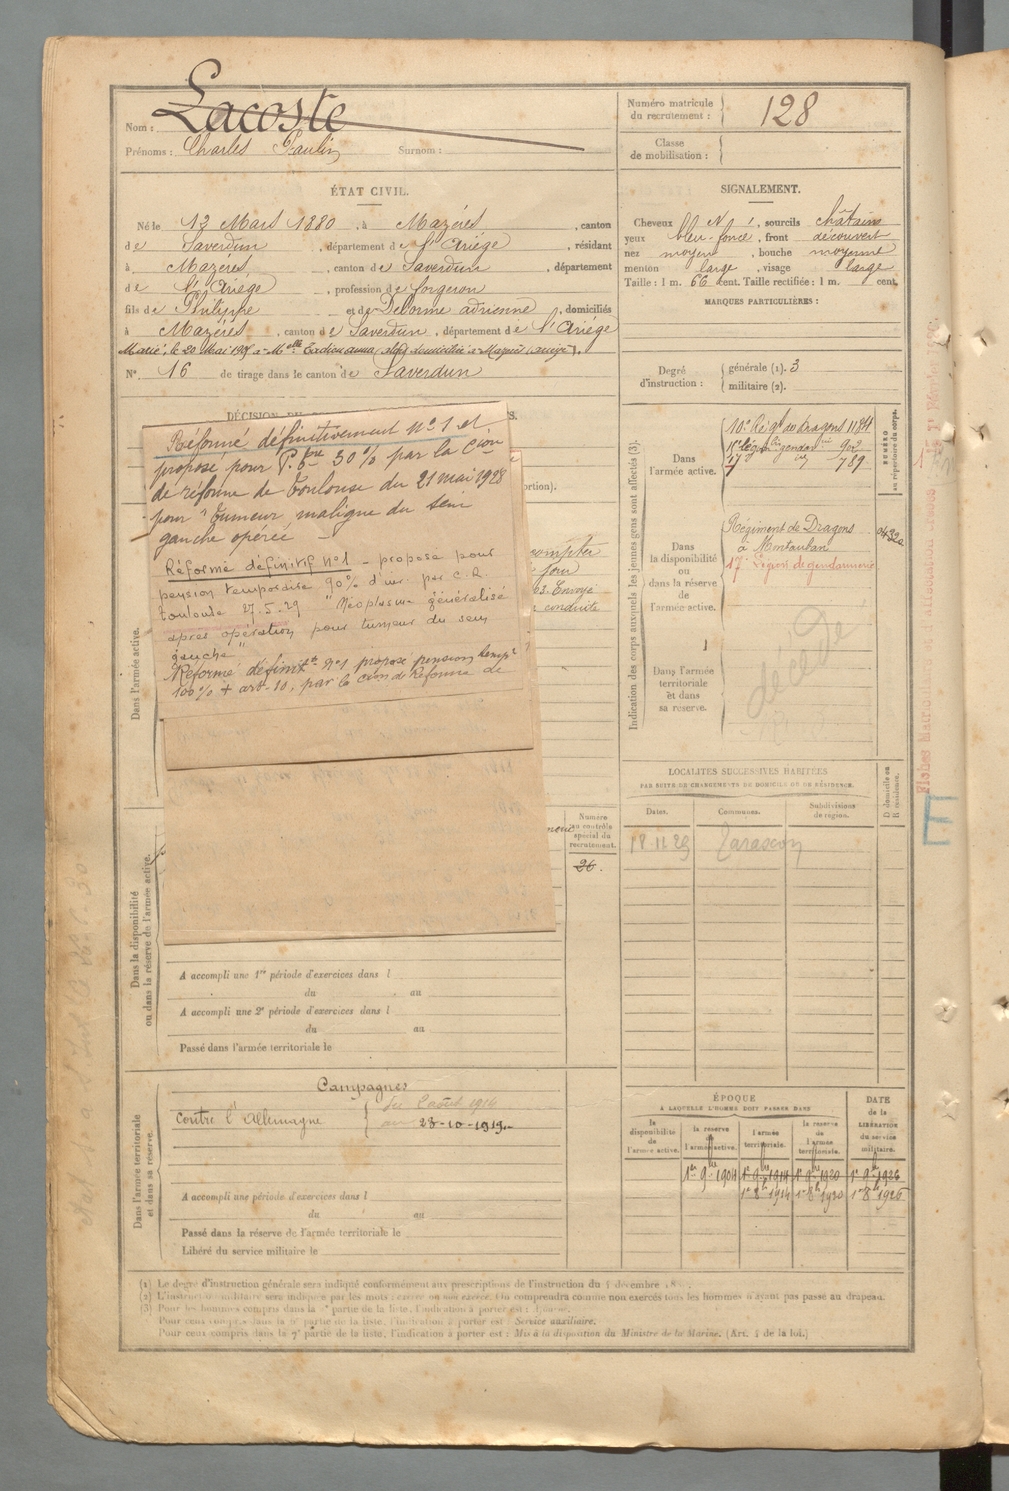 Nom : Lacoste
Prénoms : Charles Paulin Surnom :
Numéro matricule du recrutement : 128
Classe de mobilisation :
ÉTAT CIVIL.
Né le 13 Mars 1880, à Mazéres, canton
de Saverdun, département de l'Ariége, résidant
à Mazéres, canton de Saverdun, département
de l'Ariége, profession de forgeron
fils de Philippe et de Delorme adrienne, domiciliés
à Mazéres, canton de Saverdun, département de l'Ariége
Marié, le 20 Mai
N° 16 de tirage dans le canton de Saverdun
SIGNALEMENT.
Cheveux bl N, sourcils châtains
yeux bleu-foncé, front découvert
nez moyen, bouche moyenne
menton large, visage large
Taille : 1 m. 66 cent. Taille rectifiée : 1 m. cent.
MARQUES PARTICULIÈRES :
Degré d'instruction : générale (1). 3
militaire (2).
Réformé définitivement N° 1 et
proposé pour P. 50 % par la Cion
de réforme de Toulouse du 21 mai 1928
pour "Tumeur maligne du sein
gauche opérée –
Réformé définitif n°1 – proposé pour
pension temporaire 90% d'inv. par C.R.
toulouse 27.5.29 "Néoplasme généralisé
après opération pour tumeur du sein
gauche"
Réformé définitt n°1 proposé pension tempre
100% + art. 10, par la Cion de Réforme de
portion).
compter
jour
Envoyé
conduite
Dans l'armée active.
Indication des corps auxquels les jeunes gens sont affectés (3).
Dans l'armée active.
10e Régt de dragons 1184
17 789
NUMÉRO au répertoire du corps.
Dans la disponibilité ou dans la réserve de l'armée active.
Régiment de Dragons
à Montauban
17e Légion de gendarmerie
Dans l'armée territoriale et dans sa réserve.
décédé
LOCALITÉS SUCCESSIVES HABITÉES
PAR SUITE DE CHANGEMENTS DE DOMICILE OU DE RÉSIDENCE.
Dates. Communes. Subdivisions de région. D domicile ou R résidence.
18.11.29 Tarascon
Numéro au contrôle spécial du recrutement.
26.
Dans la disponibilité ou dans la réserve de l'armée active.
A accompli une 1re période d'exercices dans l
du au
A accompli une 2e période d'exercices dans l
du au
Passé dans l'armée territoriale le
Dans l'armée territoriale et dans sa réserve.
Campagnes
Contre l'Allemagne
du 2 août 1914
au 28-10-1919.
A accompli une période d'exercices dans l
du au
Passé dans la réserve de l'armée territoriale le
Libéré du service militaire le
ÉPOQUE
A LAQUELLE L'HOMME DOIT PASSER DANS
la disponibilité de l'armée active.
la réserve de l'armée active.
l'armée territoriale.
la réserve de l'armée territoriale.
DATE de la LIBÉRATION du service militaire.
1er 9bre 1904 1er 9bre 1914 1er 9bre 1920 1er 9bre 1926
(1) Le degré d'instruction générale sera indiqué conformément aux prescriptions de l'instruction du 4 décembre
(2) L'instruction militaire sera indiquée par les mots : exercé ou non exercé. On comprendra comme non exercés tous les hommes n'ayant pas passé au drapeau.
(3) Pour les hommes compris dans la partie de la liste, l'indication à porter est :
Pour ceux compris dans la 5e partie de la liste, l'indication à porter est : Service auxiliaire.
Pour ceux compris dans la 7e partie de la liste, l'indication à porter est : Mis à la disposition du Ministre de la Marine. (Art. 4 de la loi.)